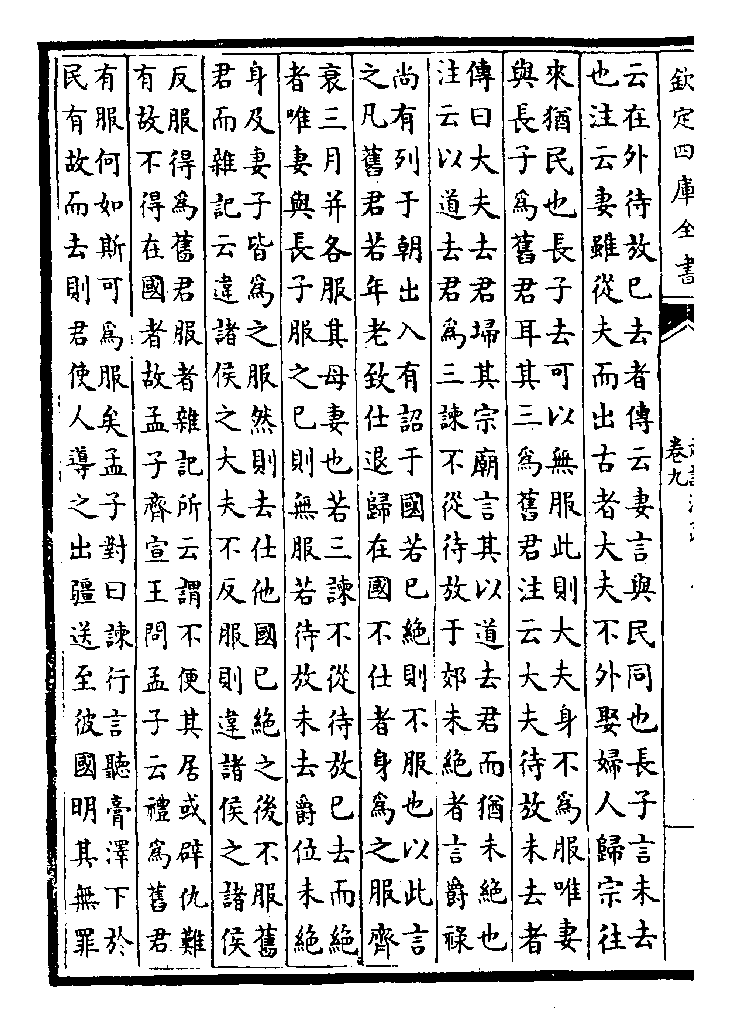 欽定四庫全書
卷九
云在外待放已去者傳云妻言與民同也長子言未去
也注云妻雖從夫而出古者大夫不外娶婦人歸宗往
來猶民也長子去可以無服此則大夫身不為服唯妻
與長子為舊君耳其三為舊君注云大夫待放未去者
傳曰大夫去君埽其宗廟言其以道去君而猶未絶也
注云以道去君為三諫不從待放于郊未絶者言爵祿
尚有列于朝出入有詔于國若已絶則不服也以此言
之凡舊君若年老致仕退歸在國不仕者身為之服齊
衰三月并各服其母妻也若三諫不從待放已去而絶
者唯妻與長子服之已則無服若待放未去爵位未絶
身及妻子皆為之服然則去仕他國已絶之後不服舊
君而雜記云違諸侯之大夫不反服則違諸侯之諸侯
反服得為舊君服者雜記所云謂不便其居或辟仇難
有故不得在國者故孟子齊宣王問孟子云禮為舊君
有服何如斯可為服矣孟子對曰諫行言聽膏澤下於
民有故而去則君使人導之出疆送至彼國明其無罪